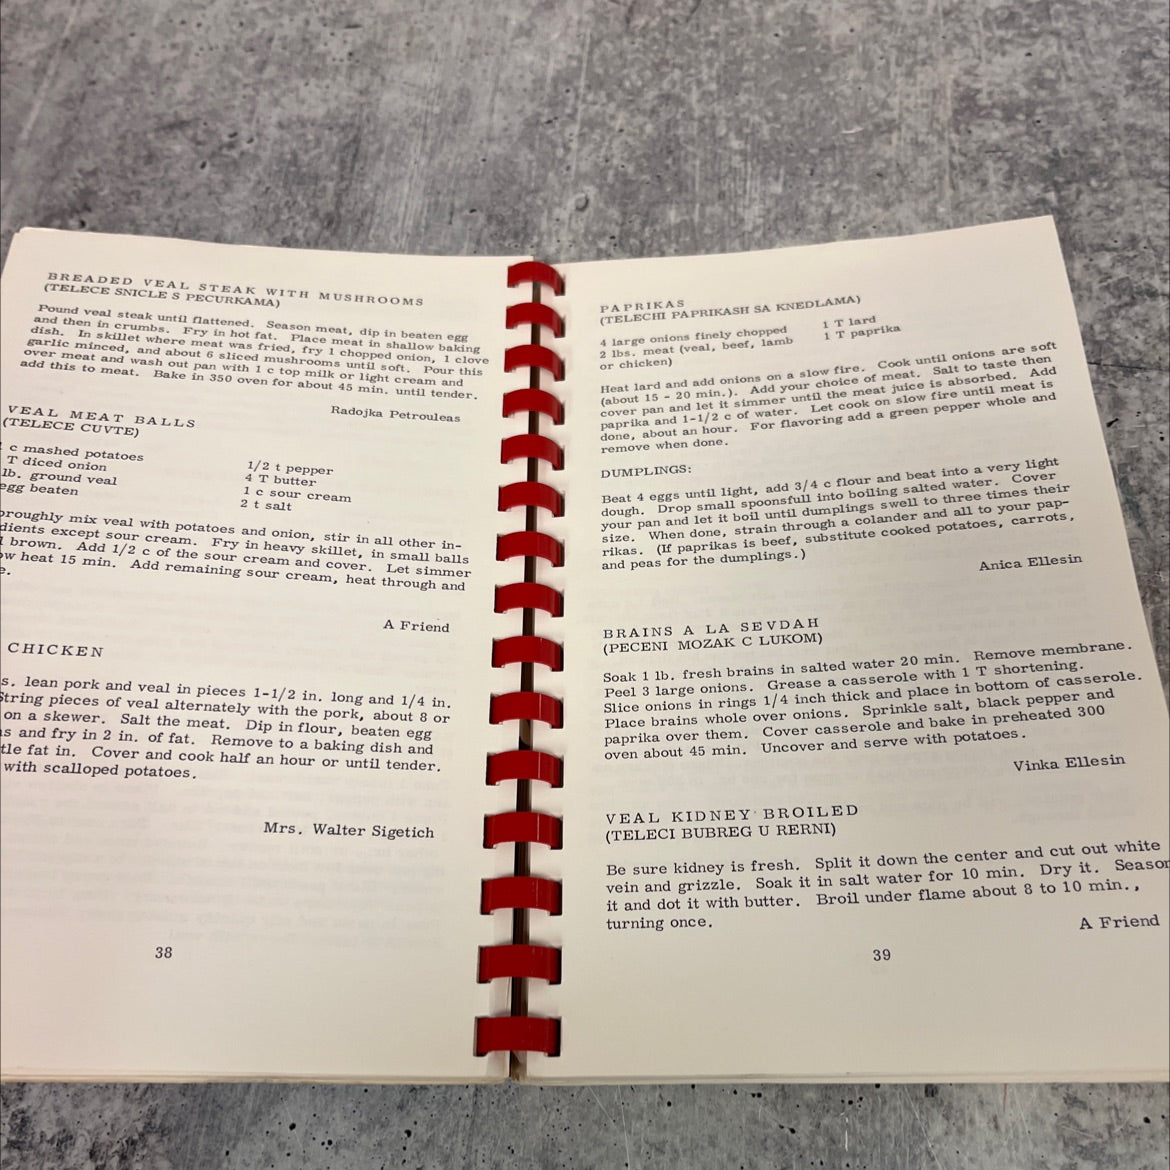 BREADED VEAL STEAK WITH MUSHROOMS
(TELECE SNICLE S PECURKAMA)
Pound veal steak until flattened. Season meat, dip in beaten egg
and then in crumbs. Fry in hot fat. Place meat in shallow baking
dish. In skillet where meat was fried, fry 1 chopped onion, 1 clove
garlic minced, and about 6 sliced mushrooms until soft. Pour this
over meat and wash out pan with 1 c top milk or light cream and
add this to meat. Bake in 350 oven for about 45 min. until tender.
Radojka Petrouleas
VEAL MEAT BALLS
(TELECE CUVTE)
c mashed potatoes
T diced onion
lb. ground veal
egg beaten
1/2 t pepper
4 T butter
1 c sour cream
2 t salt
oroughly mix veal with potatoes and onion, stir in all other in-
dients except sour cream. Fry in heavy skillet, in small balls
brown. Add 1/2 c of the sour cream and cover. Let simmer
ow heat 15 min. Add remaining sour cream, heat through and
e.
A Friend
CHICKEN
s. lean pork and veal in pieces 1-1/2 in. long and 1/4 in.
String pieces of veal alternately with the pork, about 8 or
on a skewer. Salt the meat. Dip in flour, beaten egg
s and fry in 2 in. of fat. Remove to a baking dish and
tle fat in. Cover and cook half an hour or until tender.
with scalloped potatoes.
Mrs. Walter Sigetich
38
PAPRIKAS
(TELECHI PAPRIKASH SA KNEDLAMA)
4 large onions finely chopped
2 lbs. meat (veal, beef, lamb
or chicken)
1 T lard
1 T paprika
Heat lard and add onions on a slow fire. Cook until onions are soft
(about 15 - 20 min.). Add your choice of meat. Salt to taste then
cover pan and let it simmer until the meat juice is absorbed. Add
paprika and 1-1/2 c of water. Let cook on slow fire until meat is
done, about an hour. For flavoring add a green pepper whole and
remove when done.
DUMPLINGS:
Beat 4 eggs until light, add 3/4 c flour and beat into a very light
dough. Drop small spoonsfull into boiling salted water. Cover
your pan and let it boil until dumplings swell to three times their
size. When done, strain through a colander and all to your pap-
rikas. (If paprikas is beef, substitute cooked potatoes, carrots,
and peas for the dumplings.)
Anica Ellesin
BRAINS A LA SEVDAH
(PECENI MOZAK C LUKOM)
Soak 1 lb. fresh brains in salted water 20 min. Remove membrane.
Peel 3 large onions. Grease a casserole with 1 T shortening.
Slice onions in rings 1/4 inch thick and place in bottom of casserole.
Place brains whole over onions. Sprinkle salt, black pepper and
paprika over them. Cover casserole and bake in preheated 300
oven about 45 min. Uncover and serve with potatoes.
Vinka Ellesin
VEAL KIDNEY BROILED
(TELECI BUBREG U RERNI)
Be sure kidney is fresh. Split it down the center and cut out white
vein and grizzle. Soak it in salt water for 10 min. Dry it. Season
it and dot it with butter. Broil under flame about 8 to 10 min.,
turning once.
A Friend
39